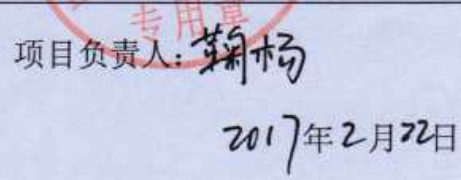 专用章
项目负责人:鞠杨
2017年2月22日